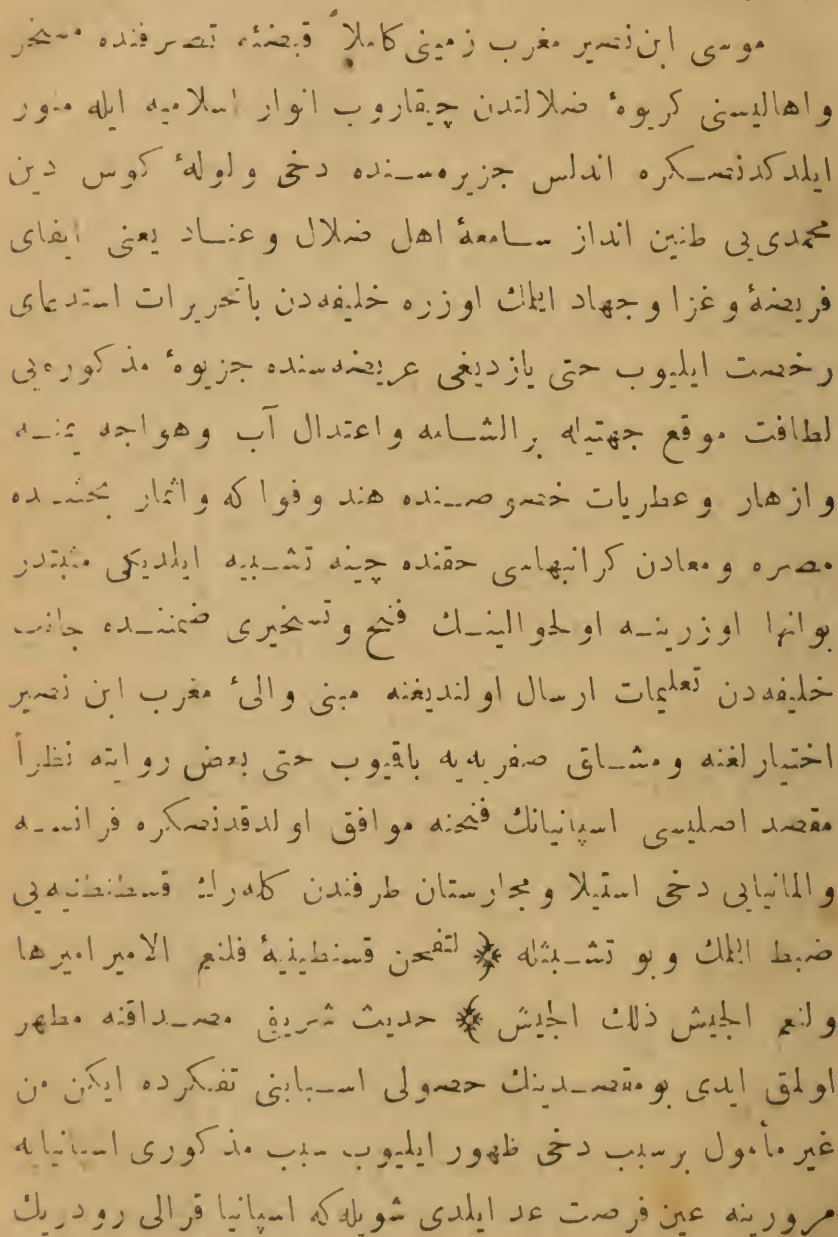 موسی ابن نصیر مغرب زمینی کاملاً قبضهٔ تصرفنده مسخر
واهالیسنی کریوهٔ ضلالتدن چیقاروب انوار اسلامیه ایله منور
ایلدکدنصکره اندلس جزیره‌سنده دخی ولولهٔ کوس دین
محمدی‌یی طنین انداز سامعهٔ اهل ضلال وعناد یعنی ایفای
فریضهٔ وغزا وجهاد ایلمك اوزره خلیفه‌دن باتحریرات استدعای
رخصت ایلیوب حتی یازدیغی عریضه‌سنده جزیرهٔ مذکوره‌یی
لطافت موقع جهتیله برالشامه واعتدال آب وهواجه یمنه
وازهار وعطریات خصوصنده هند وفواکه واثمار بحثنده
مصره ومعادن کرانبهاسی حقنده چینه تشبیه ایلدیکی مثبتدر
بوانها اوزرینه اولحوالینك فتح وتسخیری ضمننده جانب
خلیفه‌دن تعلیمات ارسال اولندیغنه مبنی والیٔ مغرب ابن نصیر
اختیارلغنه ومشاق صفریه‌یه باقیوب حتی بعض روایته نظراً
مقصد اصلیسی اسپانیانك فتحنه موافق اولدقدنصکره فرانسه
والمانیایی دخی استیلا ومجارستان طرفندن کله‌رك قسطنطنیه‌یی
ضبط ایلمك وبو تشبثله ﴿ لتفحن قسنطینیهٔ فلنعم الامیر امیرها
ولنعم الجیش ذلك الجیش ﴾ حدیث شریفی مصداقنه مظهر
اولمق ایدی بومقصدینك حصولی اسبابنی تفکرده ایکن من
غیر مأمول برسبب دخی ظهور ایلیوب سبب مذکوری اسپانیایه
مرورینه عین فرصت عد ایلدی شویله‌که اسپانیا قرالی رودریك